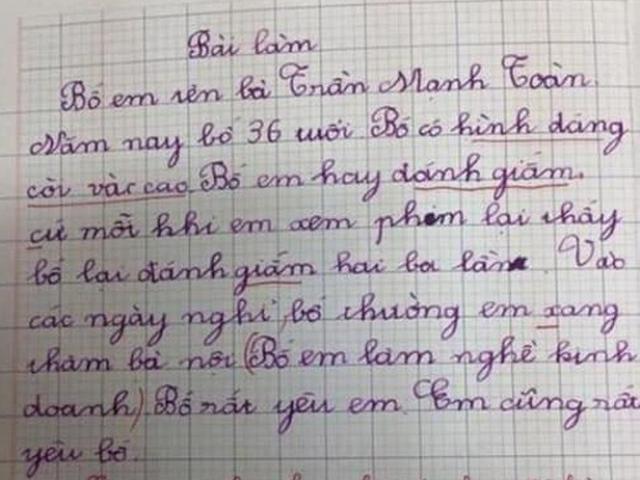 Bài làm
Bố em tên là Trần Mạnh Toàn.
Năm nay bố 36 tuổi Bố có hình dáng
còi vàc cao. Bố em hay đánh giấm.
cứ mỗi khi em xem phim lại thấy
bố lại đánh giấm hai ba lần. Vào
các ngày nghỉ, bố thường em xang
thăm bà nội (Bố em làm nghề kinh
doanh) Bố rất yêu em. Em cũng rất
yêu bố.